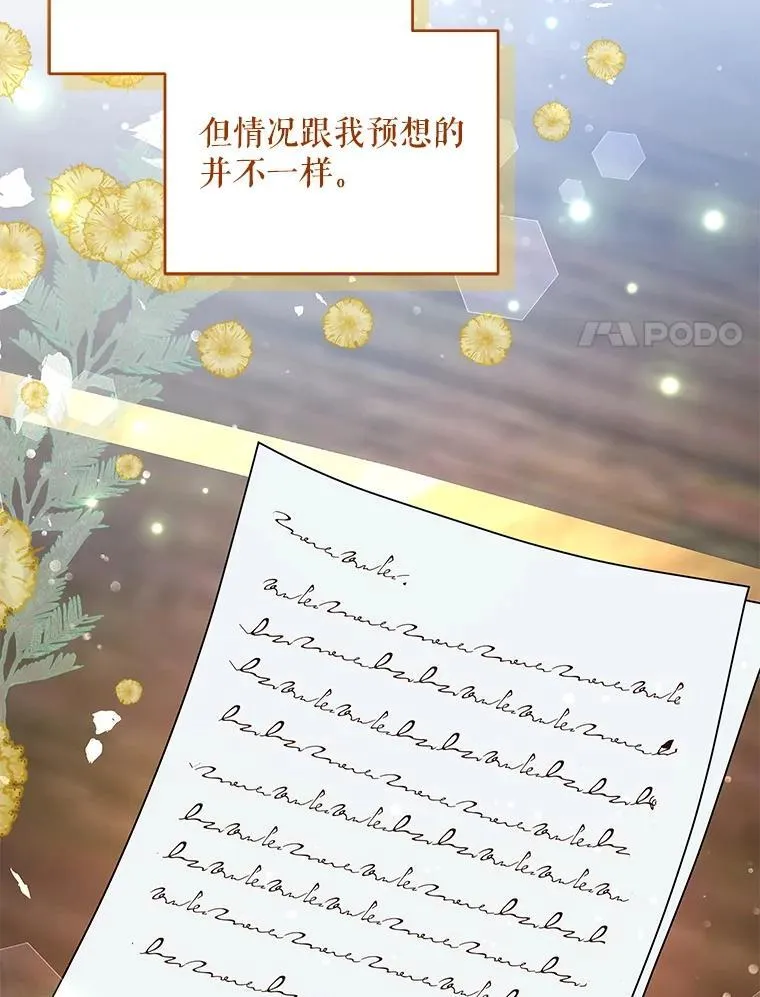 但情况跟我预想的
并不一样。
PODO